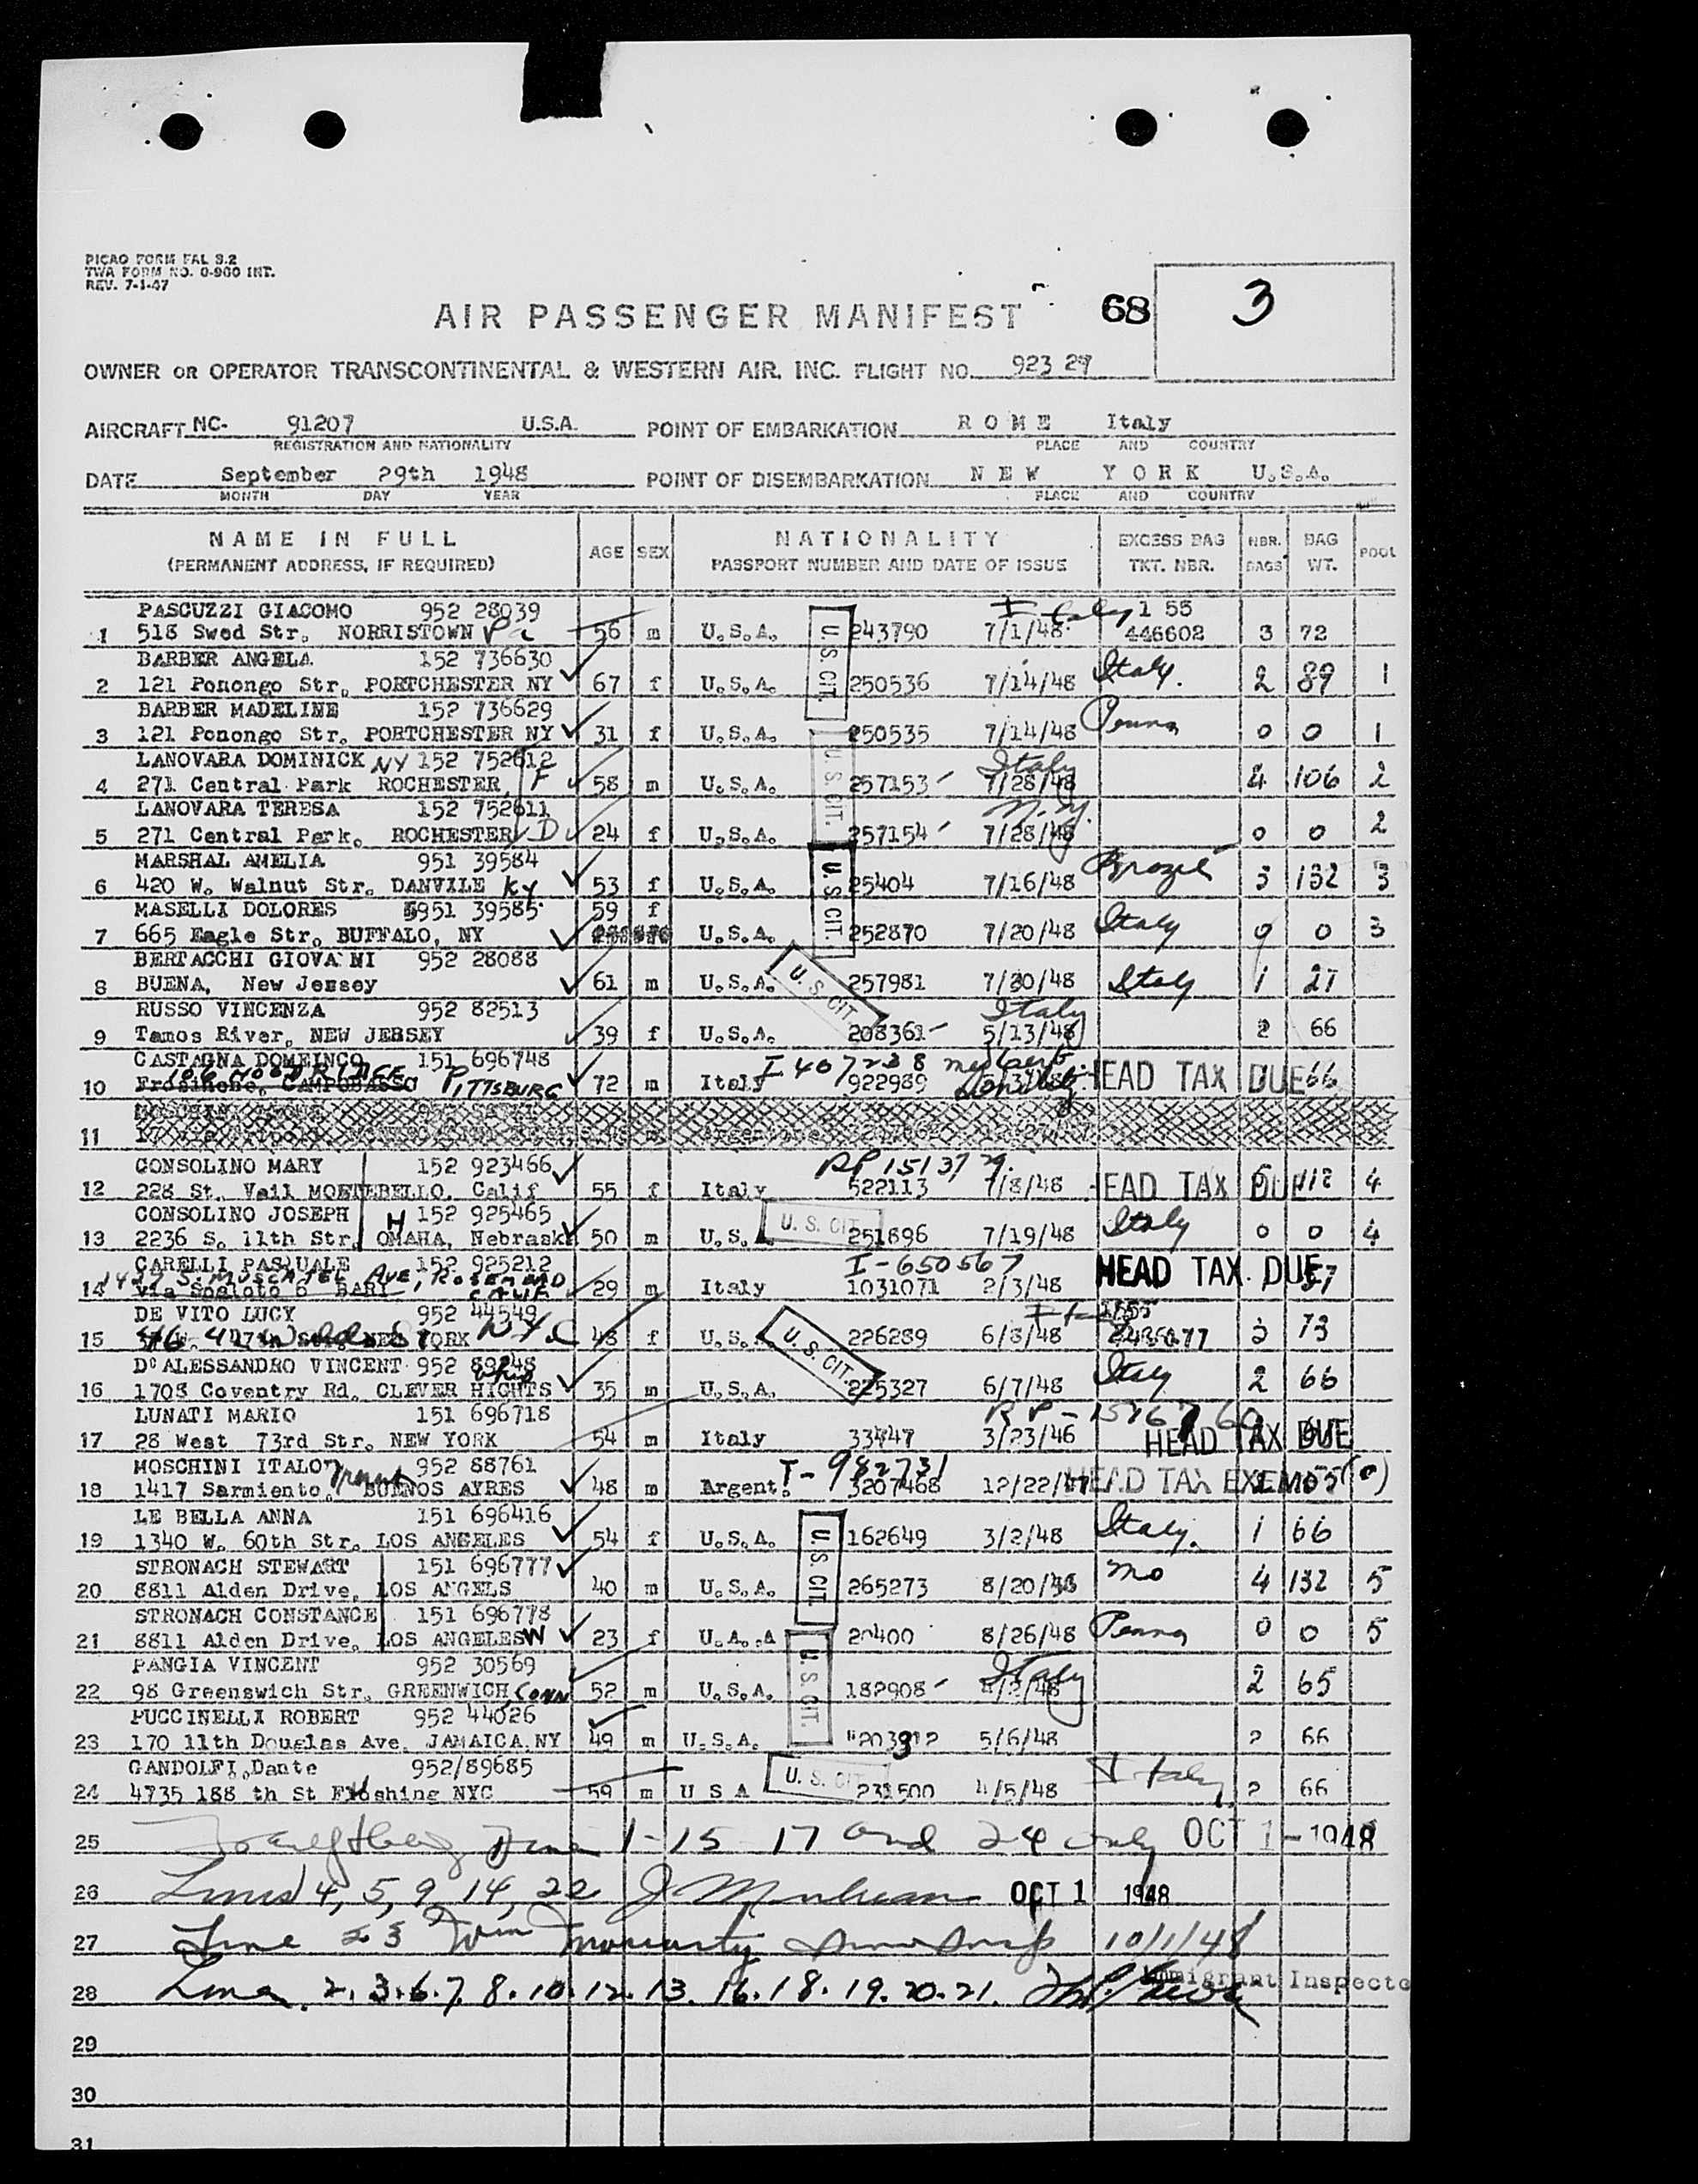 PICAO FORM FAL 3.2
TWA FORM NO. 0-900 INT.
REV. 7-1-47
AIR PASSENGER MANIFEST 68 3
OWNER OR OPERATOR TRANSCONTINENTAL & WESTERN AIR, INC. FLIGHT NO. 923 29
AIRCRAFT NC- 91207 U.S.A. POINT OF EMBARKATION R O M E Italy
REGISTRATION AND NATIONALITY PLACE AND COUNTRY
DATE September 29th 1948 POINT OF DISEMBARKATION N E W Y O R K U.S.A.
MONTH DAY YEAR PLACE AND COUNTRY
NAME IN FULL AGE SEX NATIONALITY EXCESS BAG NBR. BAG POOL
(PERMANENT ADDRESS, IF REQUIRED) PASSPORT NUMBER AND DATE OF ISSUE TKT. NBR. BAGS WT.
PASCUZZI GIACOMO 952 28039 Italy 1 55
1 518 Swed Str. NORRISTOWN Pa 56 m U.S.A. 243790 7/1/48 446602 3 72
BARBER ANGELA 152 736630 U.S. CIT.
2 121 Ponongo Str. PORTCHESTER NY 67 f U.S.A. 250536 7/14/48 Italy. 2 89 1
BARBER MADELINE 152 736629
3 121 Ponongo Str. PORTCHESTER NY 31 f U.S.A. 250535 7/14/48 Penna 0 0 1
LANOVARA DOMINICK NY 152 752612 Italy
4 271 Central Park ROCHESTER, F 58 m U.S.A. 257153 7/28/48 4 106 2
LANOVARA TERESA 152 752611 U.S. CIT. N.Y.
5 271 Central Park. ROCHESTER D 24 f U.S.A. 257154 7/28/48 0 0 2
MARSHAL AMELIA 951 39584
6 420 W. Walnut Str. DANVILE Ky 53 f U.S.A. 25404 7/16/48 Brazil 3 132 3
MASELLI DOLORES 951 39585 59 f U.S. CIT.
7 665 Eagle Str. BUFFALO, NY U.S.A. 252870 7/20/48 Italy 0 0 3
BERTACCHI GIOVANNI 952 28088
8 BUENA, New Jersey 61 m U.S.A. U.S. CIT. 257981 7/30/48 Italy 1 27
RUSSO VINCENZA 952 82513 Italy
9 Tamos River, NEW JERSEY 39 f U.S.A. 208361 5/13/48 2 66
CASTAGNA DOMEINCO 151 696748 I 407238
10 Frosinone, CAMPOBASSO PITTSBURG 72 m Italy 922989 HEAD TAX DUE 66
11
CONSOLINO MARY 152 923466 RP 151379.
12 228 St. Vail MONTEBELLO, Calif 55 f Italy 522113 7/8/48 HEAD TAX DUE 112 4
CONSOLINO JOSEPH H 152 925465
13 2236 S. 11th Str. OMAHA, Nebrask 50 m U.S. U.S. CIT. 251896 7/19/48 Italy 0 0 4
CARELLI PASQUALE 152 925212 I-650567
1427 S. MUSCATEL AVE, ROSEMEAD CALIF
14 Via Spoloto 6 BARI, 29 m Italy 1031071 2/3/48 HEAD TAX DUE 37
DE VITO LUCY 952 44549 Italy
15 NEW YORK N.Y.C 48 f U.S. 226289 6/8/48 3 73
D'ALESSANDRO VINCENT 952 89248 Ohio U.S. CIT.
16 1708 Coventry Rd. CLEVER HIGHTS 35 m U.S.A. 225327 6/7/48 Italy 2 66
LUNATI MARIO 151 696718
17 28 West 73rd Str. NEW YORK 54 m Italy 33447 3/23/46 HEAD TAX DUE
MOSCHINI ITALO 952 88761 T-982731
18 1417 Sarmiento. BUENOS AYRES 48 m Argent. 3207468 12/22/47 HEAD TAX EXEMPT
LE BELLA ANNA 151 696416
19 1340 W. 60th Str. LOS ANGELES 54 f U.S.A. 162649 3/2/48 Italy. 1 66
STRONACH STEWART 151 696777 U.S. CIT.
20 8811 Alden Drive, LOS ANGELS 40 m U.S.A. 265273 8/20/48 Mo 4 132 5
STRONACH CONSTANCE 151 696778
21 8811 Alden Drive, LOS ANGELES W 23 f U.A..A 20400 8/26/48 Penna 0 0 5
PANGIA VINCENT 952 30569 Italy
22 98 Greenswich Str. GREENWICH, CONN 52 m U.S.A. 182908 4/2/48 2 65
PUCCINELLI ROBERT 952 44026 U.S. CIT.
23 170 11th Douglas Ave. JAMAICA.NY 49 m U.S.A. 203912 5/6/48 2 66
GANDOLFI,Dante 952/89685
24 4735 188 th St Flushing NYC 59 m U S A U.S. CIT. 231500 4/5/48 Italy 2 66
25 1-15 17 and 24 only OCT 1-1948
26 Lines 4, 5, 9, 14, 22 OCT 1 1948
27 Line 23 Wm Moriarty 10/1/48
28 Lines 2.3.6.7.8.10.12.13.16.18.19.20.21. Immigrant Inspecto
29
30
31